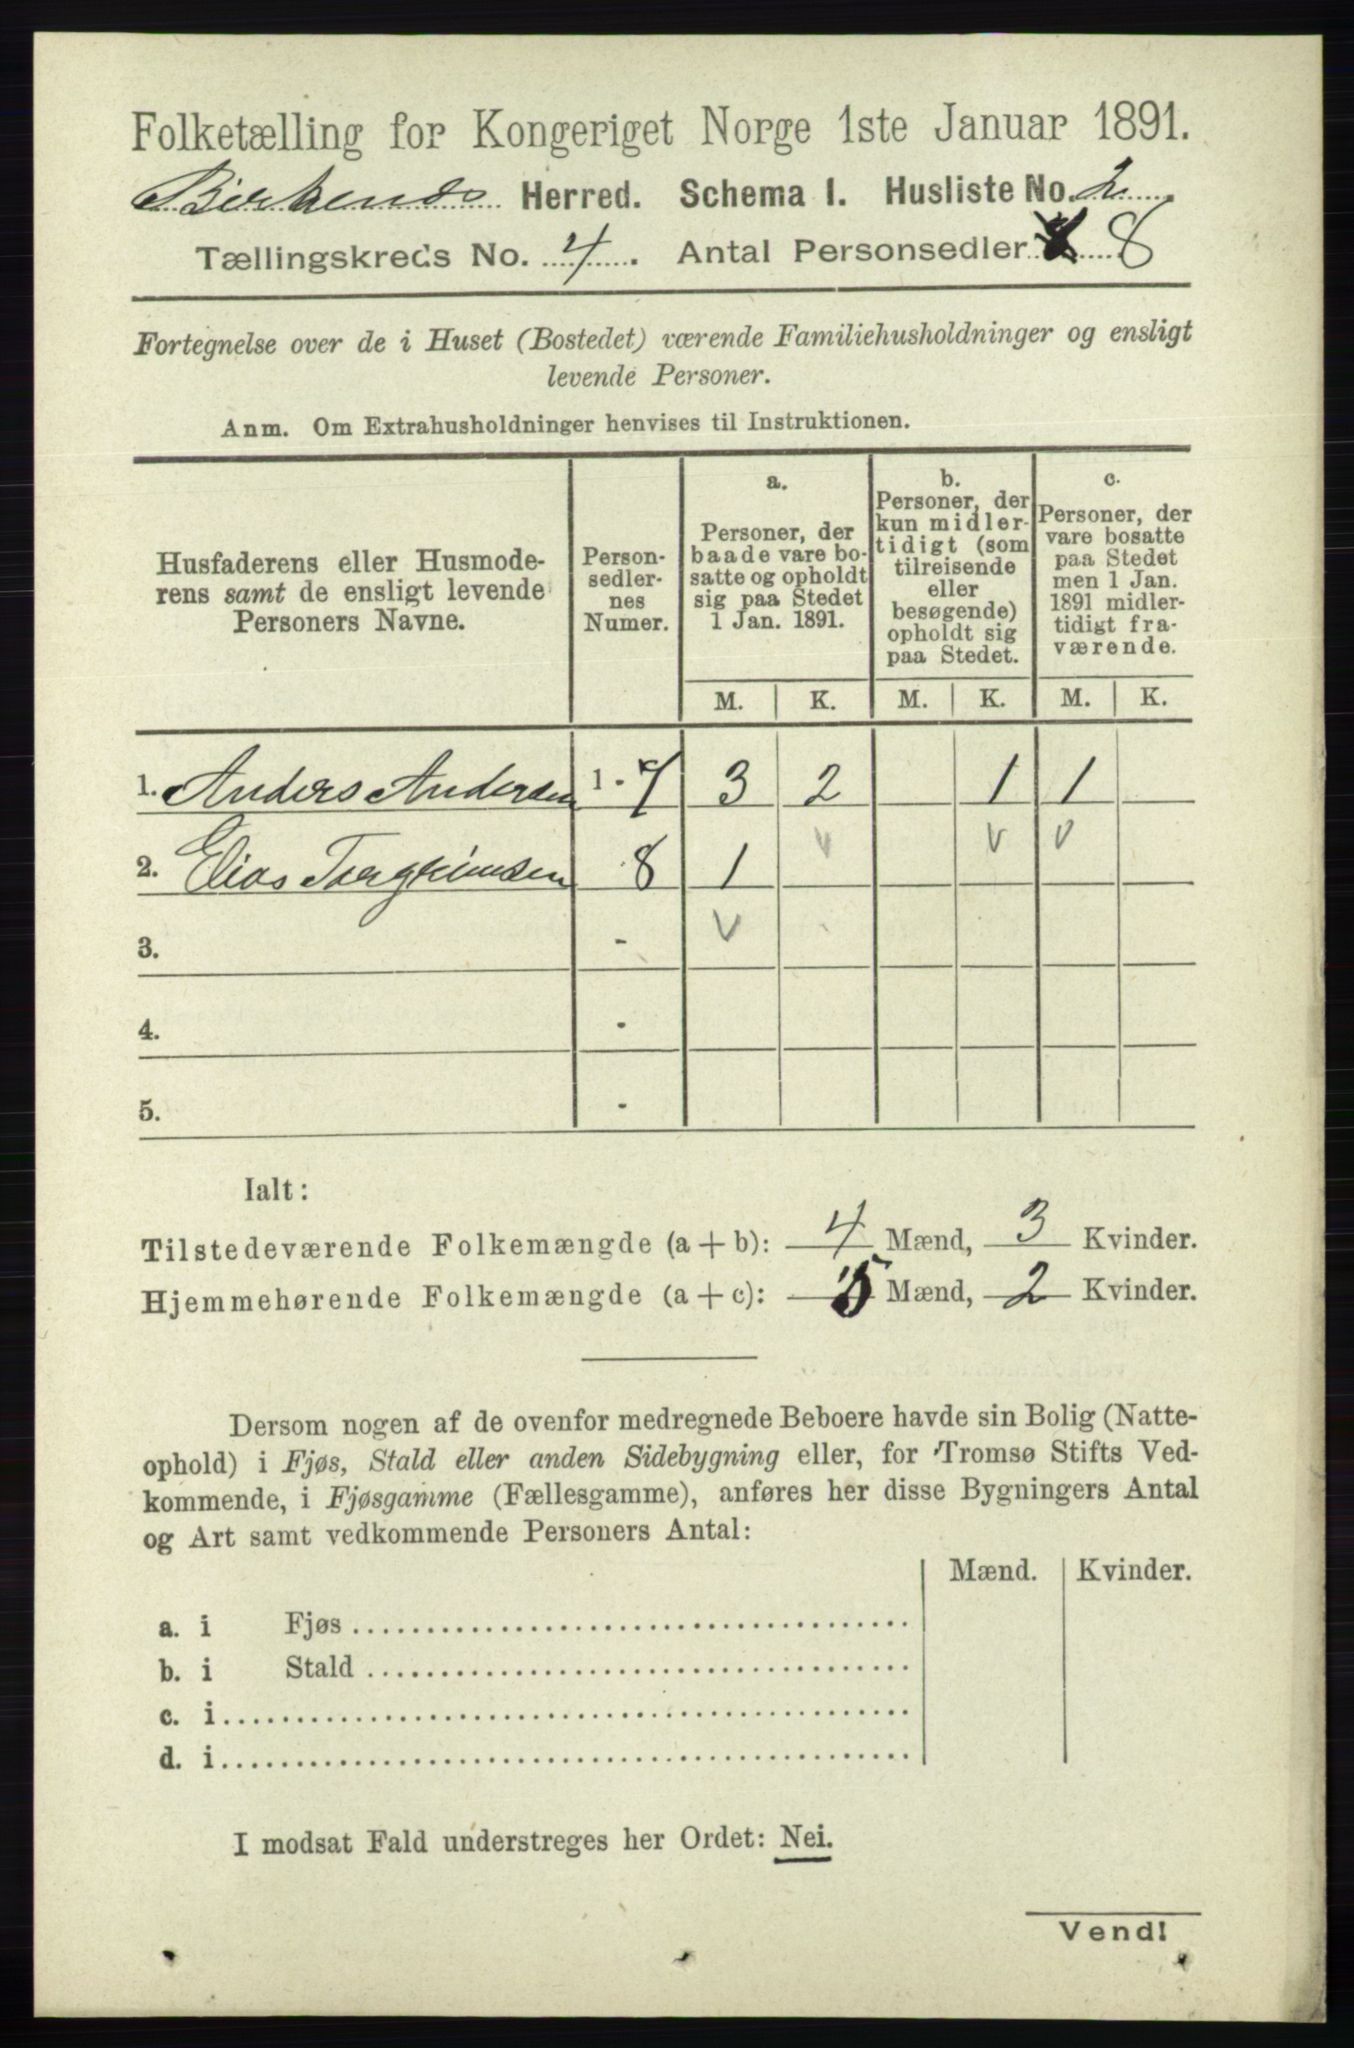 Folketælling for Kongeriget Norge 1ste Januar 1891.
Birkenes Herred. Schema I. Husliste No. 2
Tællingskreds No. 4. Antal Personsedler 8
Fortegnelse over de i Huset (Bostedet) værende Familiehusholdninger og ensligt
levende Personer.
Anm. Om Extrahusholdninger henvises til Instruktionen.
Husfaderens eller Husmode-
rens samt de ensligt levende
Personers Navne.
Person-
sedler-
nes
Numer.
a.
Personer, der
baade vare bo-
satte og opholdt
sig paa Stedet
1 Jan. 1891.
b.
Personer, der
kun midler-
tidigt (som
tilreisende
eller
besøgende)
opholdt sig
paa Stedet.
c.
Personer, der
vare bosatte
paa Stedet
men 1 Jan.
1891 midler-
tidigt fra-
værende.
M. K. M. K. M. K.
1. Anders Andersen 1 - 7 3 2 1 1
2. Elias Torgrimsen 8 1 v v v
3. - v
4. -
5. -
Ialt:
Tilstedeværende Folkemængde (a + b): 4 Mænd, 3 Kvinder.
Hjemmehørende Folkemængde (a + c): 5 Mænd, 2 Kvinder.
Dersom nogen af de ovenfor medregnede Beboere havde sin Bolig (Natte-
ophold) i Fjøs, Stald eller anden Sidebygning eller, for Tromsø Stifts Ved-
kommende, i Fjøsgamme (Fællesgamme), anføres her disse Bygningers Antal
og Art samt vedkommende Personers Antal:
Mænd. Kvinder.
a. i Fjøs
b. i Stald
c. i
d. i
I modsat Fald understreges her Ordet: Nei.
Vend!